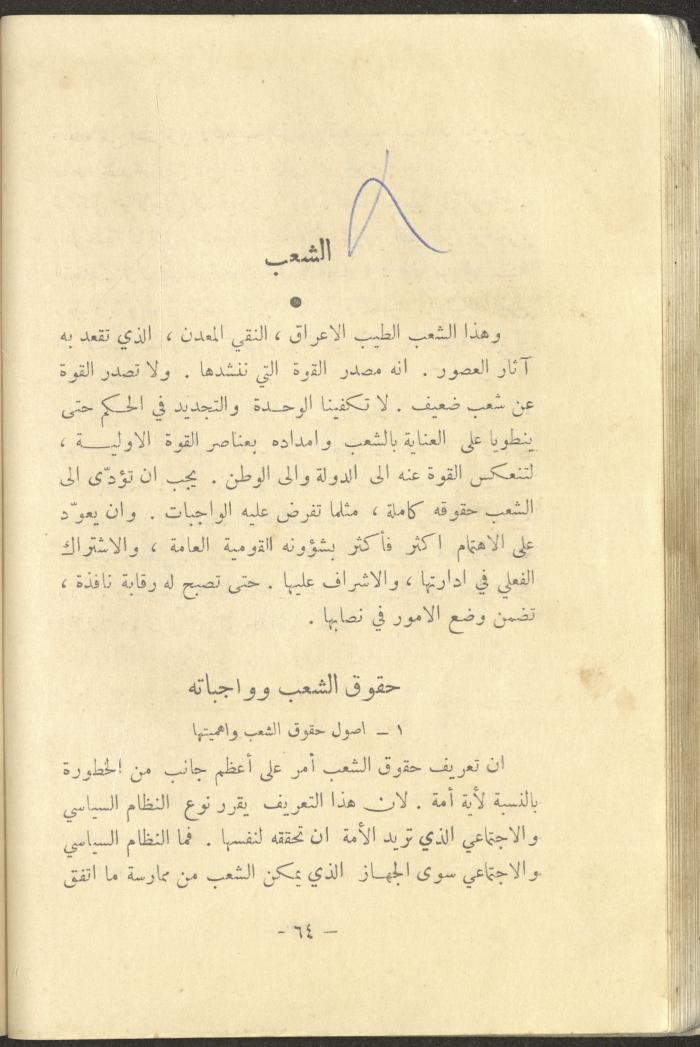 الشعب
وهذا الشعب الطيب الاعراق ، النقي المعدن ، الذي تقعد به
آثار العصور . انه مصدر القوة التي ننشدها . ولا تصدر القوة
عن شعب ضعيف . لا تكفينا الوحدة والتجديد في الحكم حتى
ينطويا على العناية بالشعب وامداده بعناصر القوة الاولية ،
لتنعكس القوة عنه الى الدولة والى الوطن . يجب ان تؤدّى الى
الشعب حقوقه كاملة ، مثلما تفرض عليه الواجبات . وان يعوّد
على الاهتمام اكثر فأكثر بشؤونه القومية العامة ، والاشتراك
الفعلي في ادارتها ، والاشراف عليها . حتى تصبح له رقابة نافذة ،
تضمن وضع الامور في نصابها .
حقوق الشعب وواجباته
١ – اصول حقوق الشعب واهميتها
ان تعريف حقوق الشعب أمر على أعظم جانب من الخطورة
بالنسبة لأية أمة . لان هذا التعريف يقرر نوع النظام السياسي
والاجتماعي الذي تريد الأمة ان تحققه لنفسها . فما النظام السياسي
والاجتماعي سوى الجهاز الذي يمكن الشعب من ممارسة ما اتفق
– ٦٤ -